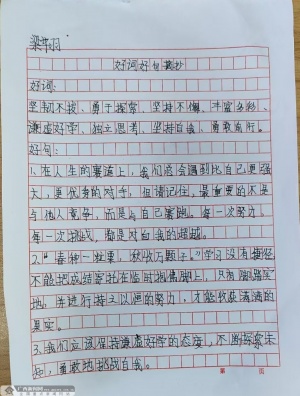 梁苹羽
好词好句摘抄
好词:
坚韧不拔、勇于探索、坚持不懈、丰富多彩、
谦虚好学、独立思考、坚持自我、勇敢前行。
好句:
1.在人生的赛道上,我们总会遇到比自己更强
大,更优秀的对手,但请记住,最重要的不是
与他人竞争,而是与自己赛跑。每一次努力,
每一次挑战,都是对自我的超越。
2."春种一粒粟,秋收万颗子。"学习没有捷径
不能把成绩寄托在临时抱佛脚上,只有脚踏实
地,并进行持之以恒的努力,才能收获满满的
果实。
3.我们应该保持谦虚好学的态度,不断探索未
知,勇敢地挑战自我。
第 页